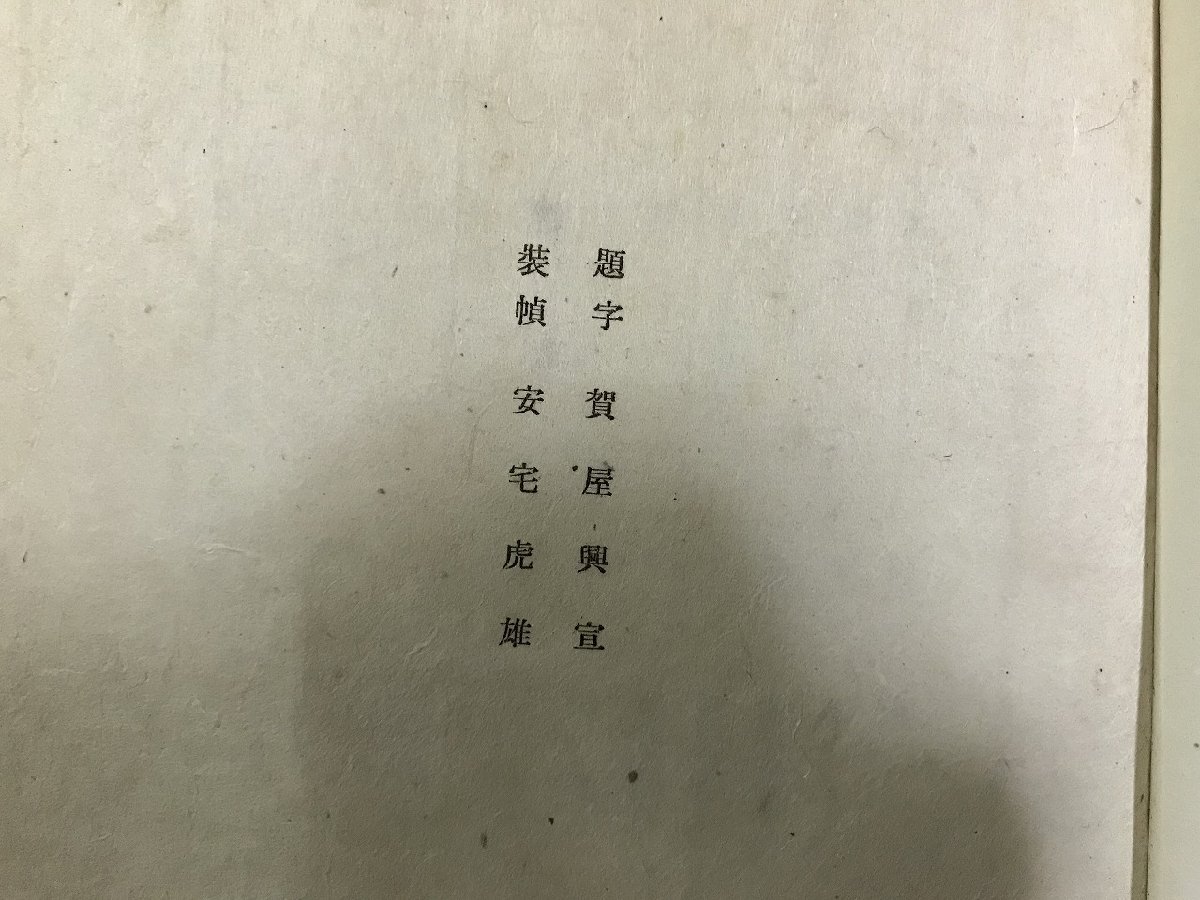 題字 賀屋興宣
裝幀 安宅虎雄